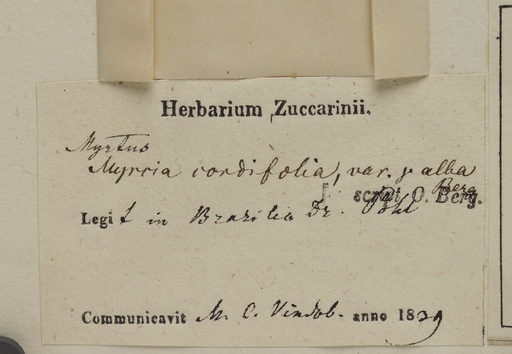 Herbarium Zuccarinii.
Myrtus
Myrcia cordifolia, var. γ alba
Berg
scrpt O. Berg.
Legit in Brazilia Dr. Pohl
Communicavit M. C. Vindob. anno 1839